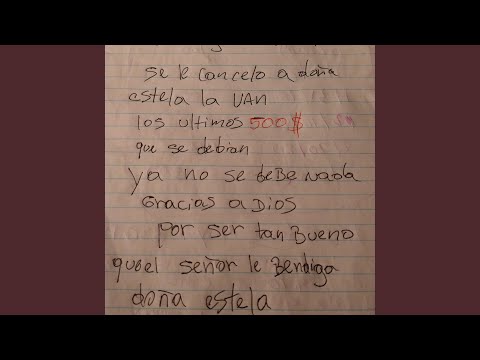 se le cancelo a doña
estela la VAN
los ultimos 500$
que se debian
ya no se deBe Nada
Gracias a Dios
por ser tan Bueno
queel señor le Bendiga
doña estela